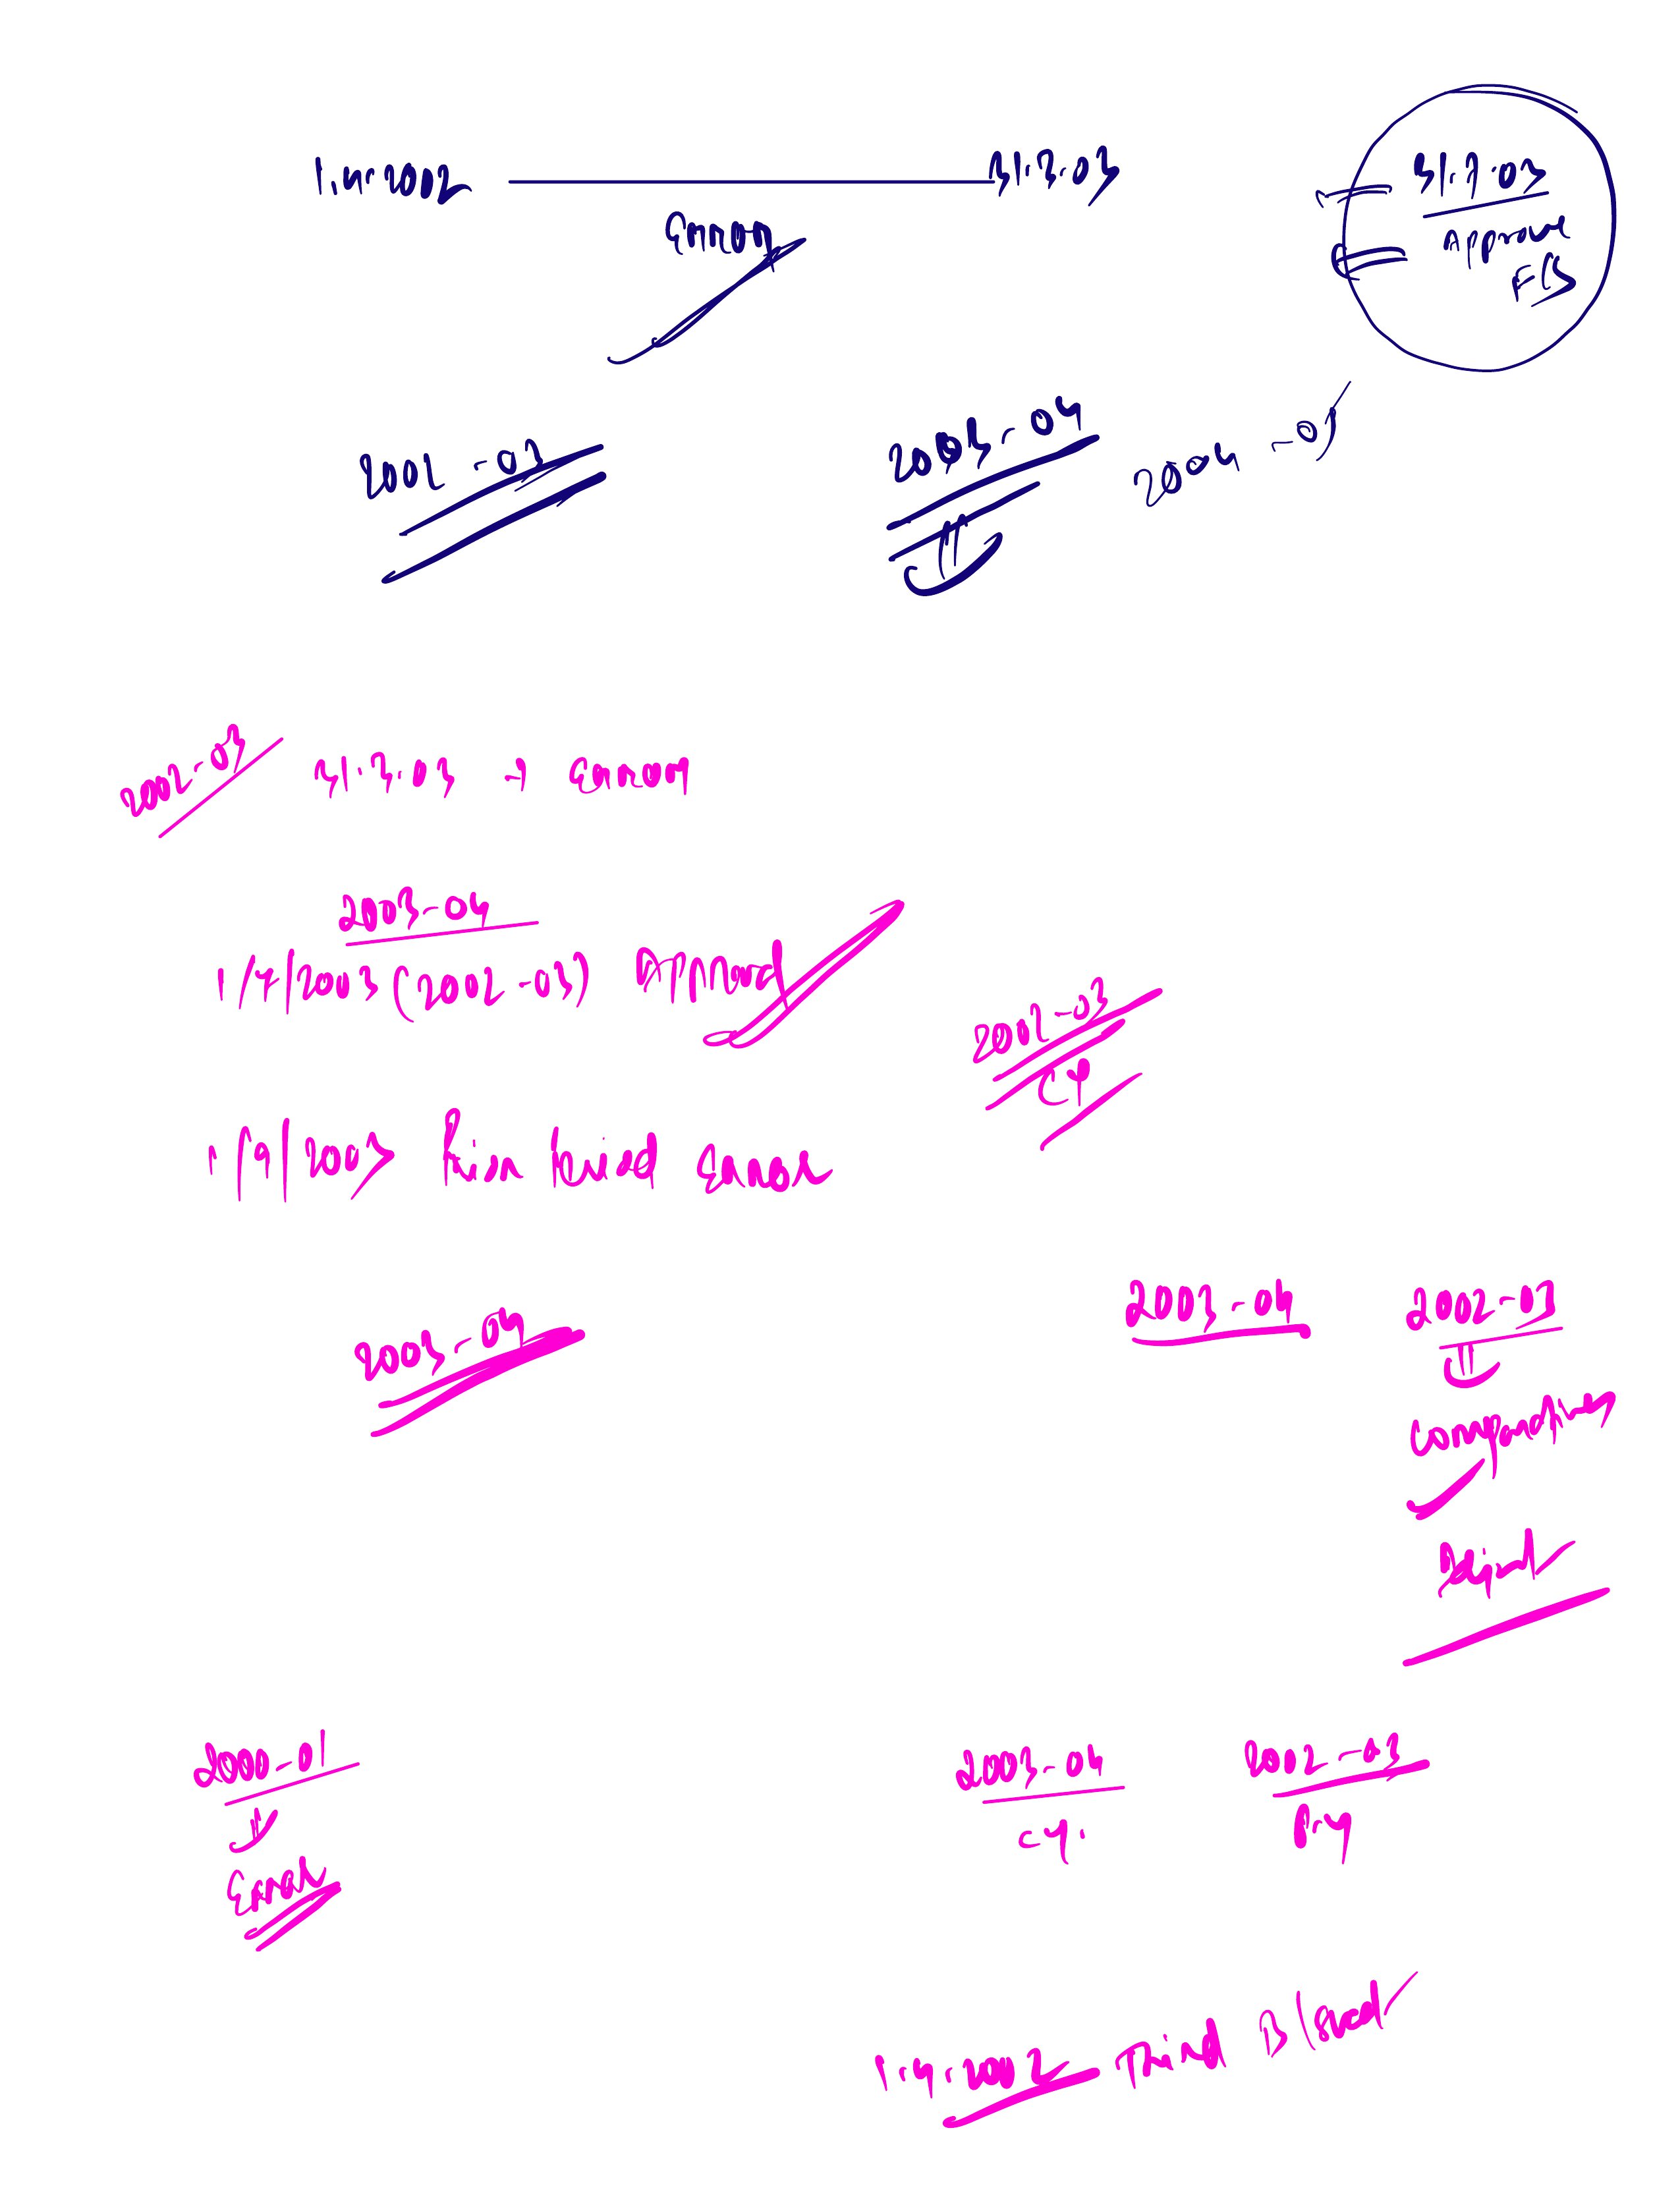 1.4.2002 31.3.03
Error
31.3.03
Approve
F/S
2002-03 2003-04 2004-05
2002-03 31.3.03 → Error
2003-04
1/7/2003 (2002-03) Approved
2002-03
CY
1/9/2003 Error
2003-04
2003-04 2002-03
Comparatives
2000-01
Error
2003-04 2002-03
C.Y. P.Y
1.4.2002 Third B/Sheet